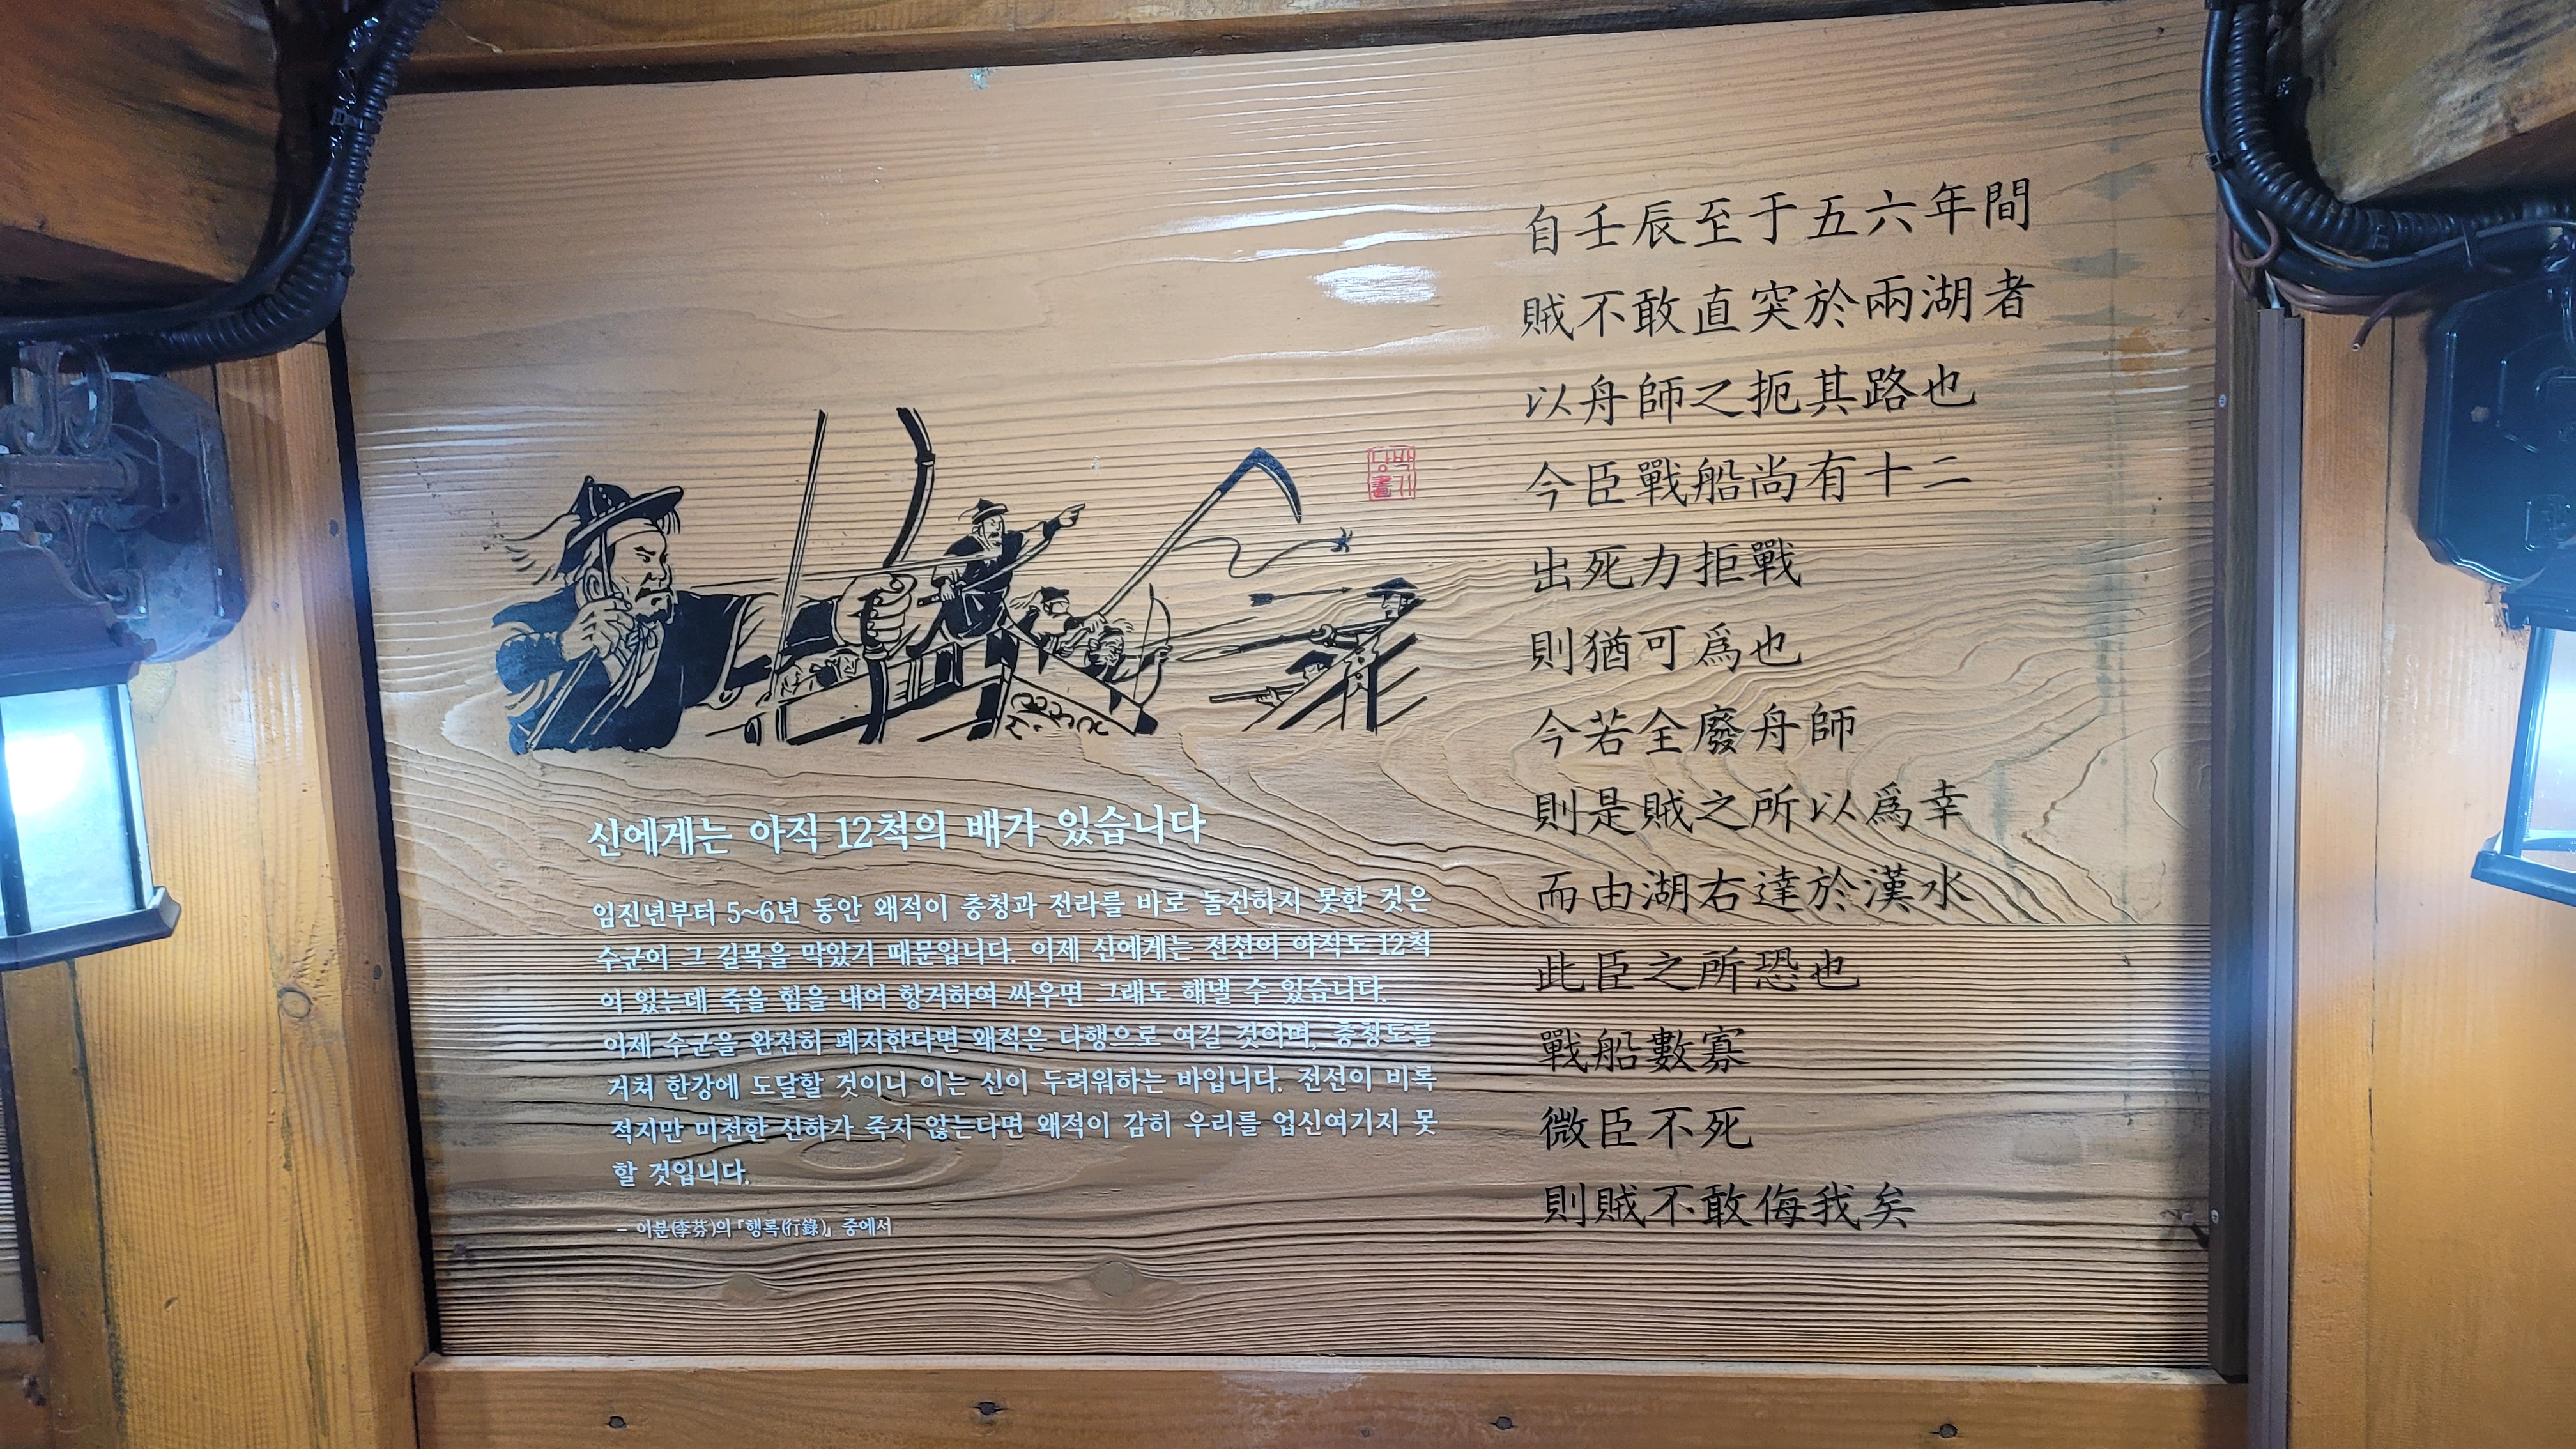 自壬辰至于五六年間
賊不敢直突於兩湖者
以舟師之扼其路也
今臣戰船尚有十二
出死力拒戰
則猶可爲也
今若全廢舟師
則是賊之所以爲幸
而由湖右達於漢水
此臣之所恐也
戰船數寡
微臣不死
則賊不敢侮我矣
신에게는 아직 12척의 배가 있습니다
임진년부터 5~6년 동안 왜적이 충청과 전라를 바로 돌진하지 못한 것은
수군이 그 길목을 막았기 때문입니다. 이제 신에게는 전선이 아직도 12척
이 있는데 죽을 힘을 내어 항거하여 싸우면 그래도 해낼 수 있습니다.
이제 수군을 완전히 폐지한다면 왜적은 다행으로 여길 것이며, 충청도를
거쳐 한강에 도달할 것이니 이는 신이 두려워하는 바입니다. 전선이 비록
적지만 미천한 신하가 죽지 않는다면 왜적이 감히 우리를 업신여기지 못
할 것입니다.
- 이분(李芬)의 『행록(行錄)』 중에서